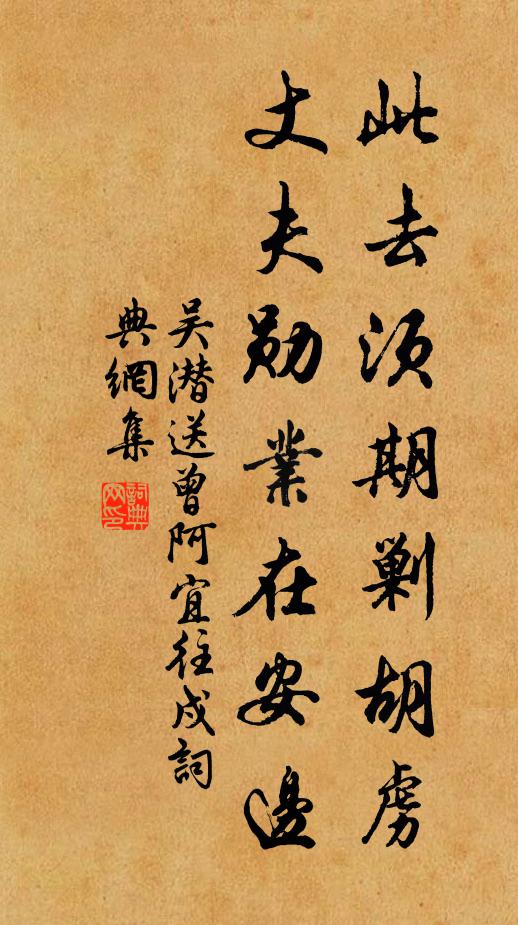 此去須期剿胡虜
丈夫勛業在安邊
吴潜送曾阿宜往戍詞
典網集
詞典網印